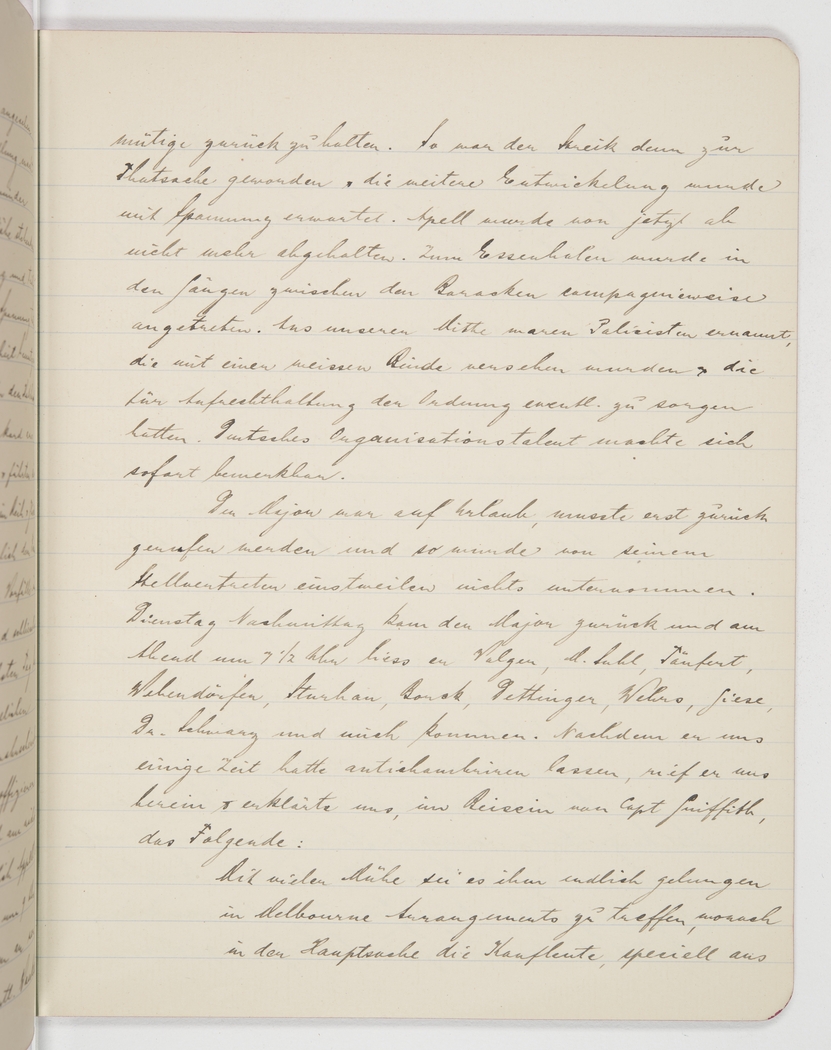 mütige zurück zu halten. So war der Streik denn zur
Thatsache geworden & die weitere Entwickelung wurde
mit Spannung erwartet. Apell wurde von jetzt ab
nicht mehr abgehalten. Zum Essenholen wurde in
den Gängen zwischen den Baracken compagnieweise
angetreten. Aus unserer Mitte waren Polizisten ernannt,
die mit einer weissen Binde versehen wurden & die
für Aufrechthaltung der Ordnung eventl. zu sorgen
hatten. Deutsches Organisationstalent machte sich
sofort bemerkbar.
Der Major war auf Urlaub, musste erst zurück
gerufen werden und so wurde von seinem
Stellvertreter einstweilen nichts unternommen.
Dienstag Nachmittag kam der Major zurück und am
Abend um 7 1/2 Uhr liess er Walger, M. Suhl, Täufert,
Webendörfer, Sturhan, Borck, Dettinger, Wehrs, Giese,
Dr. Schwarz und mich kommen. Nachdem er uns
einige Zeit hatte antichambriren lassen, rief er uns
herein & erklärte uns, im Beisein von Capt Griffith,
das Folgende:
Mit vieler Mühe sei es ihm endlich gelungen
in Melbourne Arrangements zu treffen, wonach
in der Hauptsache die Kaufleute, speciell aus